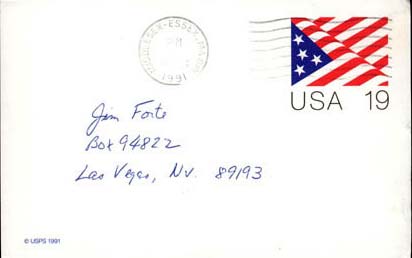 MIDDLESEX-ESSEX, MA
PM
1991
USA 19
Jim Forte
Box 94822
Las Vegas, Nv. 89193
© USPS 1991